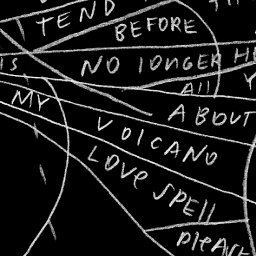 TEND
BEFORE
IS NO lONGER
All
MY ABOUT
VOlCANO
LOVE SPEll
PlEASE